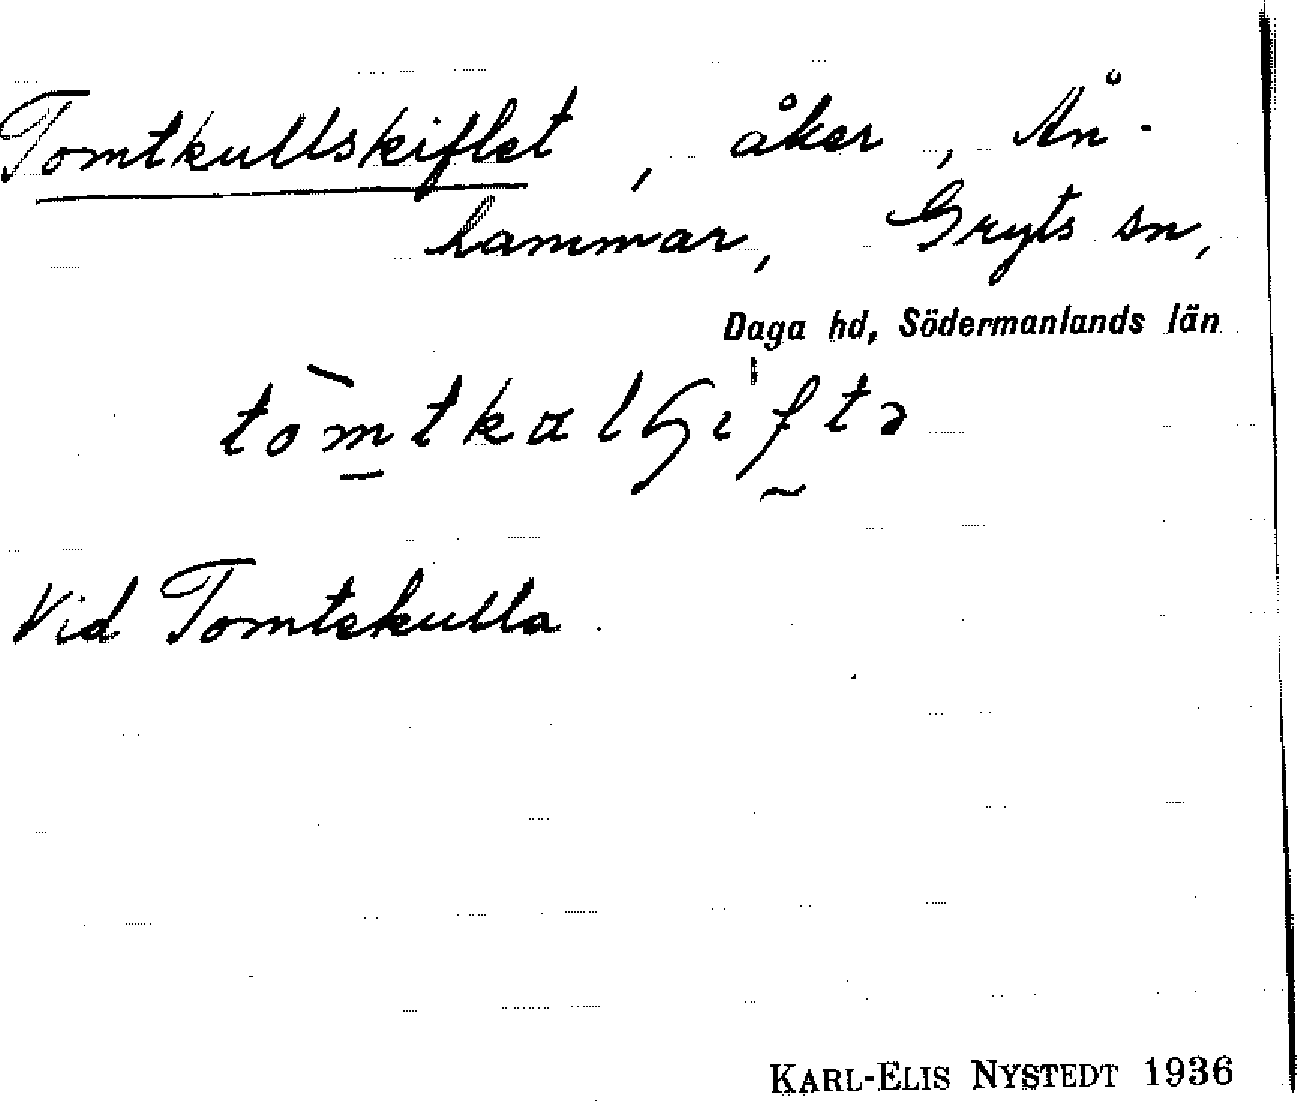 Tomtkullskiflet, åker, Ån-
hammar, Gryts sn,
Daga hd, Södermanlands län
Vid Tomtekulla.
KARL-ELIS NYSTEDT 1936